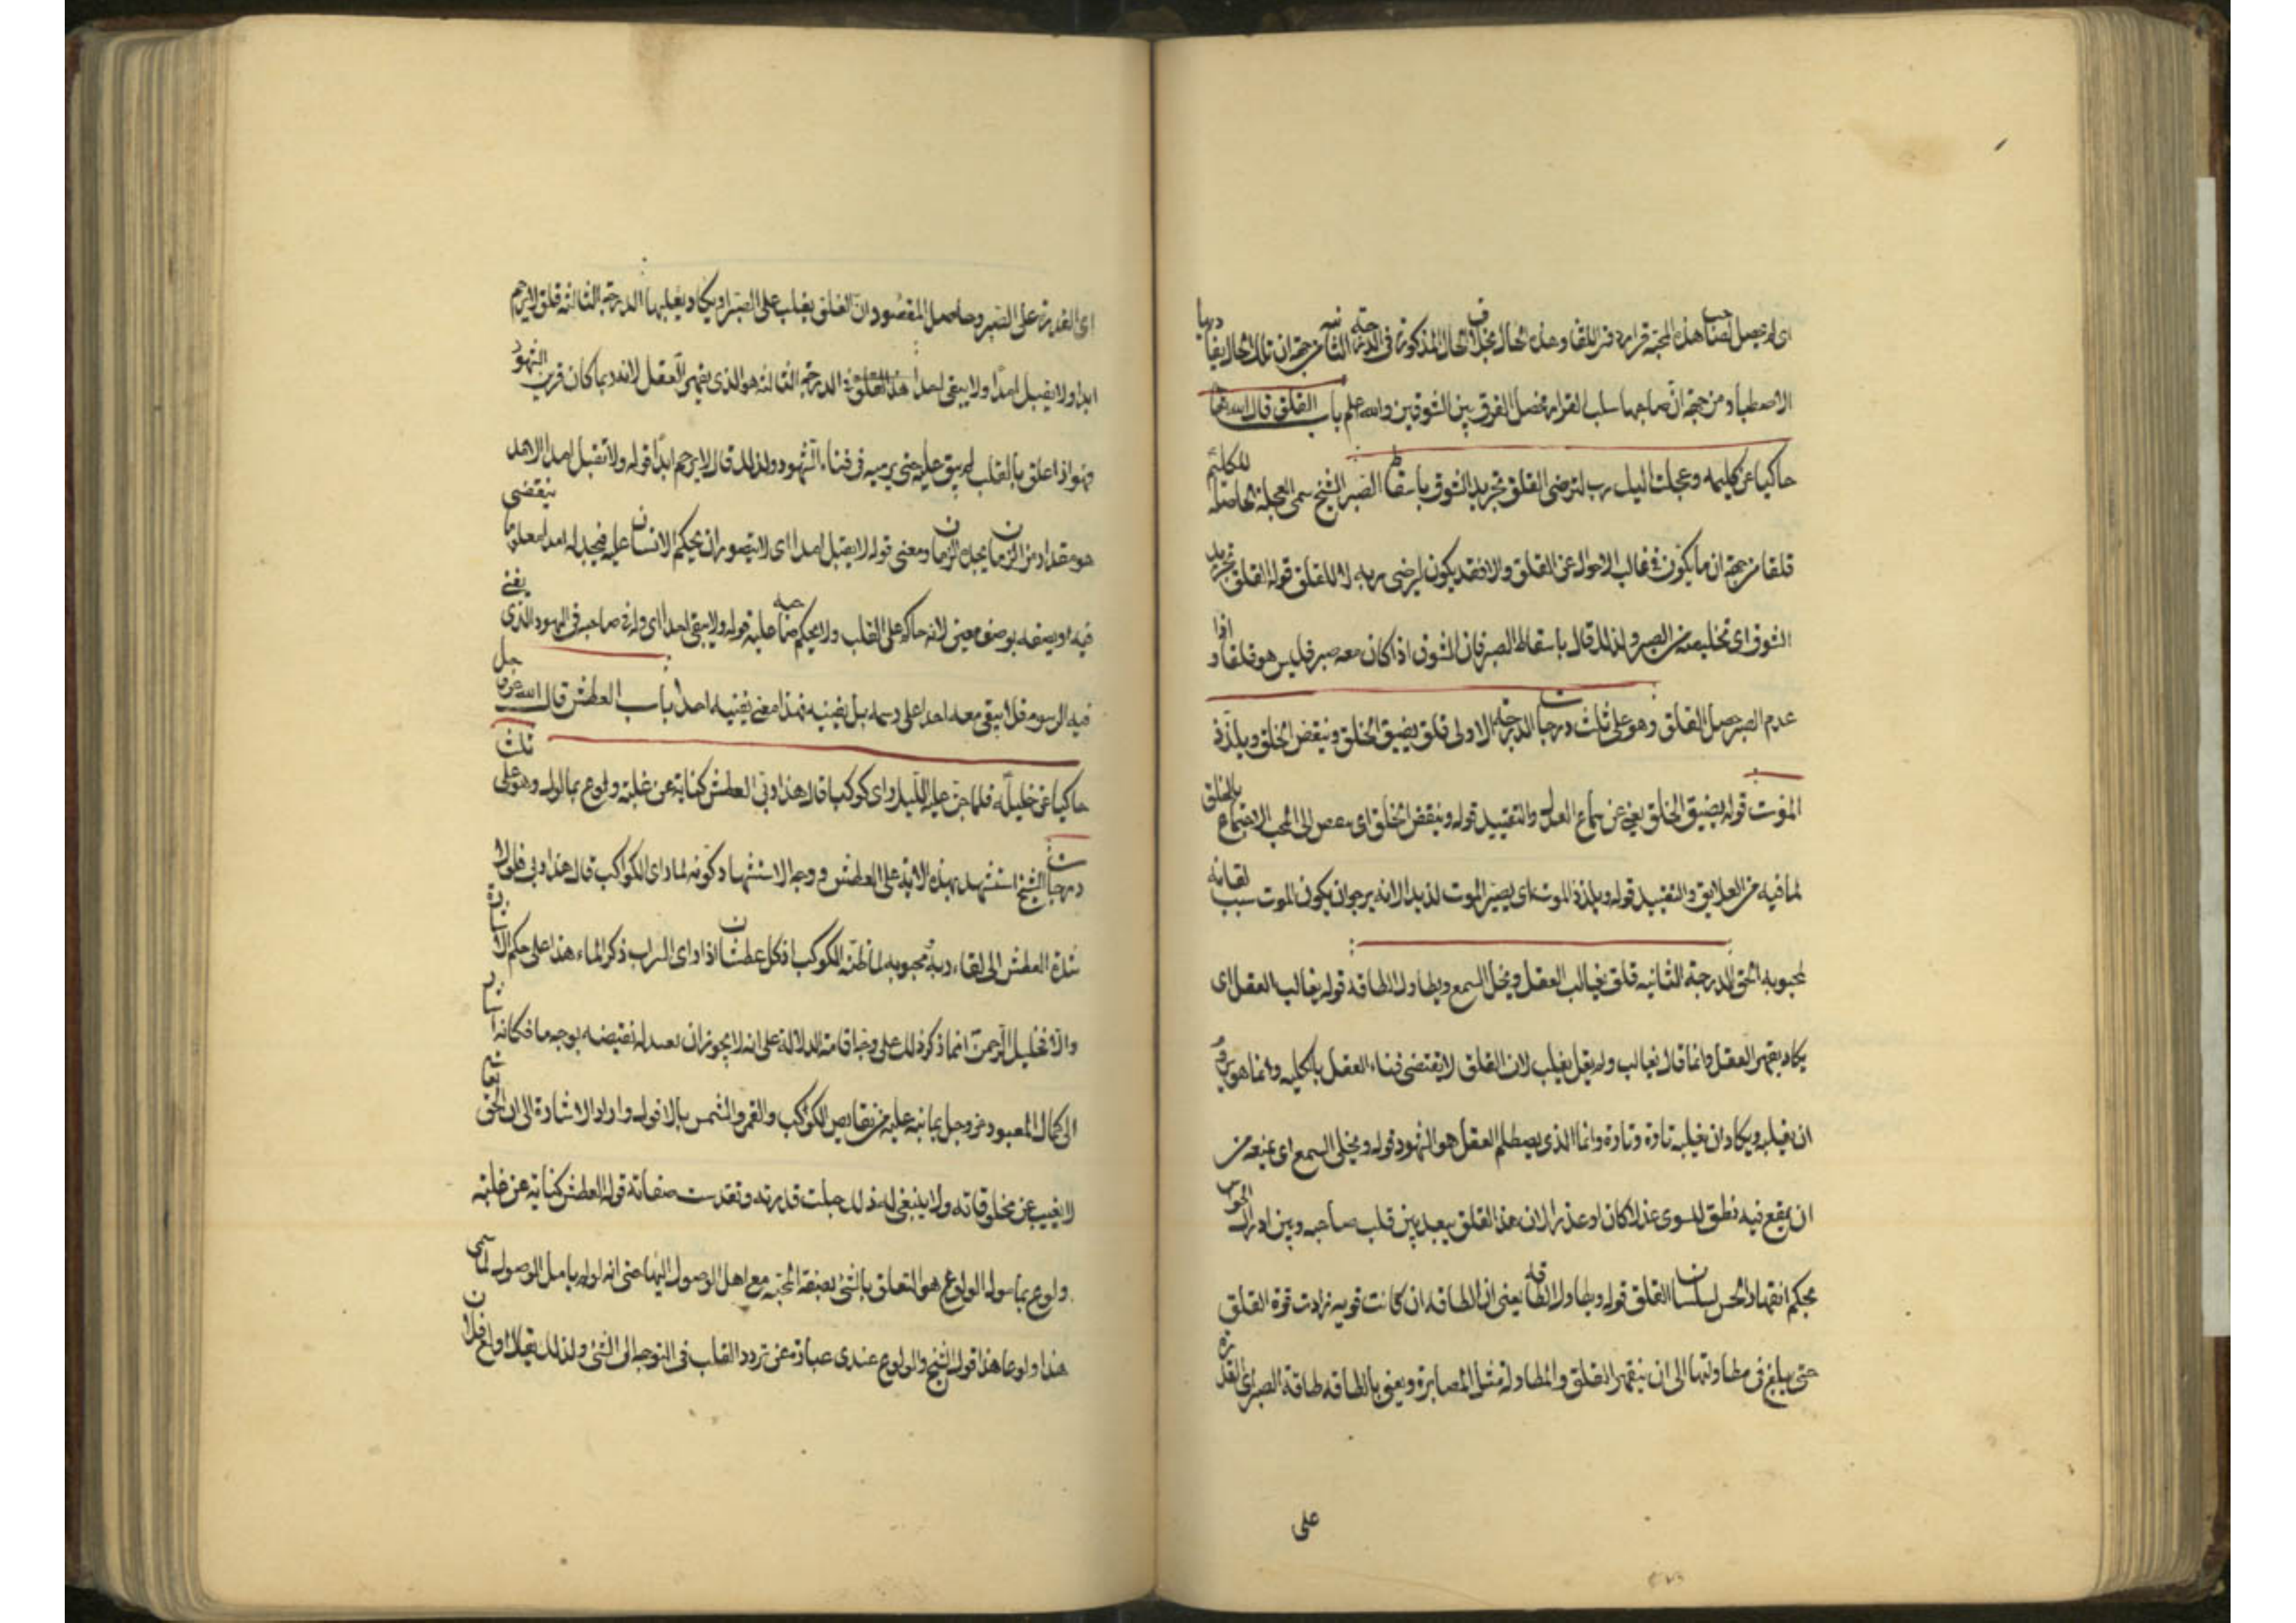 اى لم يحصل لصاحب هذه المحبة قرار دون اللقا وهذه الحال بخلاف الحال المذكورة فى الدرجة الثانية من جهة ان تلك الحال يقا دربها
الاصطبار ومن جهة ان صاحبها سلب القرار فحصل الفرق بين الشوقين والله اعلم باب القلق قال الله تعا
حاكيا عن كليمه وعجلت اليك رب لترضى القلق تجريد الشوق باسقاط الصبر الشيخ سمى العجلة الحاصلة للكليم
قلقا من جهة ان ما يكون فى غالب الاحوال عن القلق والا فقد يكون ليرضى ربه لا للقلق قوله القلق تجريد
الشوق اى تخليصه من الصبر ولذلك قال باسقاط الصبر فان الشوق اذا كان معه صبر فليس هو قلقا و اذا
عدم الصبر حصل القلق وهو على ثلث درجات الدرجة الاولى قلق يضيق الخلق ويبغض الخلق ويلذذ
الموت قوله يضيق الخلق يعنى عن سماع العذل والتقييد قوله ويبغض الخلق اى الى المحب الاجتماع بالخلق
لما فيه من العلايق والتقييد قوله ويلذذ الموت اى يصير الموت لذيذا لانه يرجو ان يكون الموت سبب لقائه
لمحبوبه الحق الدرجة الثانيه قلق يغالب العقل ويخلى السمع ويطاول الطاقة قوله يغالب العقل اى
يكاد يقهر العقل وانما قال يغالب ولم يقل يغلب لان القلق لا يقتضى فناء العقل بالكليه وانما هو
ان يغلبه ويكاد ان يغلبه تارة وتارة وانما الذى يصطلم العقل هو الشهود قوله ويخلى السمع اى يمنعه من
ان يقع فيه نطق لسوى عذلا كان او عذرا لان هذا القلق يبعد بين قلب صاحبه وبين ادراك الحواس
بحكم انقهاد الحس لسلسان القلق قوله ويطاول الطاقة يعنى ان الطاقة ان كانت قويه زادت قوة القلق
حتى يبلغ فى مطاولتها الى ان يقهر القلق والمطاولة مثل المصابرة ويعنى بالطاقه طاقة الصبر اى القدرة
على
اى القدرة على الصبر وحاصل المقصود ان القلق يغلب على الصبر او يكاد يغلبها الدرجة الثالثة قلق لا يرحم
ابدا ولا يقبل امدا ولا يبقى احدا هذا القلق فى الدرجة الثالثة هو الذى يقهر العقل لانه ربما كان قريب الشهود
فهو اذا علق بالقلب لم يبق عليه حتى يرميه فى فناء الشهود ولذلك قال لا يرحم ابدا قوله ولا تقبل امدا الامد
هو مقدار من الزمان يحده الزمان ومعنى قوله لا يقبل امدا اى لا يتصور ان يحكم الانسان عليه فيجد له امدا معلوما ينقضى
فيه او يصفه بوصف معين لانه حاكم على القلب ولا يحكم صاحبه عليه قوله ولا يبقى احدا اى ولانه صاحبه فى الشهود الذى يفنى
فيه الرسوم فلا يبقى معه احدا على رسمه بل يفنيه فهذا معنى يفنيه احدا باب العطش قال الله عز وجل
حاكيا عن خليله فلما جن عليه الليل راى كوكبا قال هذا ربى العطش كناية عن غلبة ولوع بمامول وهو على ثلث
درجات الشيخ استشهد بهذه الاية على العطش ووجه الاستشهاد كونه لما راى الكواكب قال هذا ربى فلولا
شدة العطش الى لقاء ربه محبوبه لما ظنه الكوكب اذ كل عطشان اذا راى السراب ذكر الماء هذا على حكم الاشارة
والا فخليل الرحمن انما ذكر ذلك على وجه اقامة الدلالة على انه لا يجوز ان يعبد له نقيضه بوجه ما فكانه اشار
الى كمال المعبود عز وجل بما نبه عليه من نقايص الكواكب والقمر والشمس بالافول واراد الاشارة الى ان الحق تعالى
لا يغيب عن مخلوقاته ولا ينبغى له ذلك جلت قدرته وتقدست صفاته قوله العطش كناية عن غلبة
ولوع بمامول الولوع هو التعلق بالشئ بصفة المحبة مع امل الوصول اليها حتى انه لو لم يامل الوصول لما سمى
هذا ولوعا هذا قول الشيخ والولوع عندى عبارة عن تردد القلب فى التوجه الى الشئ ولذلك يقال اولع فلان